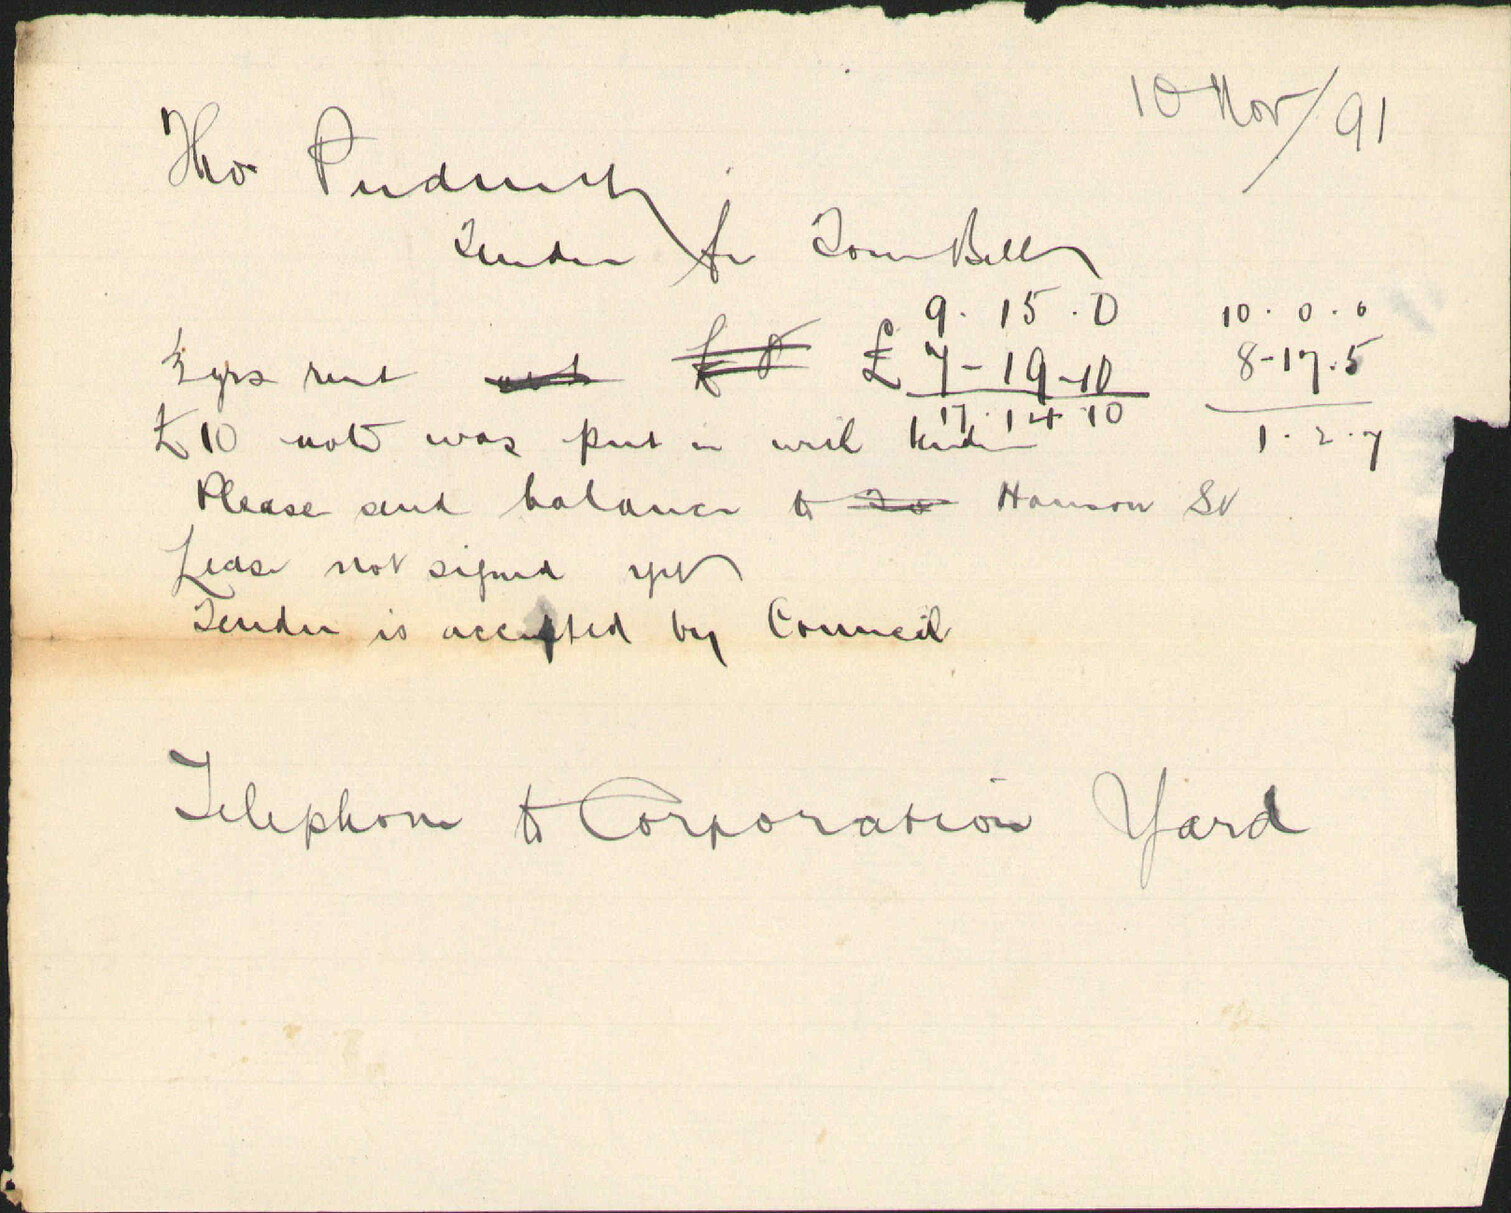 10 Nov/91
Tho Pudney
Tender for Town Belt
9. 15. 0
10. 0. 0
½ yrs rent £ 7-19-10
8-17.5
17. 14 10
£10 note was put in with tender
1. 2. 7
Please send balance to Hanson St
Lease not signed yet
Tender is accepted by Council
Telephone to Corporation Yard